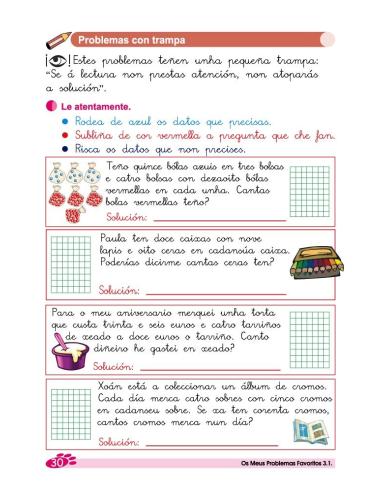 Problemas con trampa
¡ Estes problemas teñen unha pequeña trampa:
"Se á lectura non prestas atención, non atoparás
a solución".
Le atentamente.
Rodea de azul os datos que precisas.
Subliña de cor vermella a pregunta que che fan.
Risca os datos que non precises.
Teño quince bólas azuis en tres bolsas
e catro bolsas con dezaoito bólas
vermellas en cada unha. Cantas
bolas vermellas teño?
Solución:
Paula ten doce caixas con nove
lapis e oito ceras en cadansúa caixa.
Poderías dicirme cantas ceras ten?
Solución:
Para o meu aniversario merquei unha torta
que custa trinta e seis euros e catro tarriños
de xeado a doce euros o tarriño. Canto
diñeiro he gastei en xeado?
Solución:
Xoán está a coleccionar un álbum de cromos.
Cada día merca catro sobres con cinco cromos
en cadanseu sobre. Se xa ten corenta cromos,
cantos cromos merca nun día?
Solución:
30
Os Meus Problemas Favoritos 3.1.